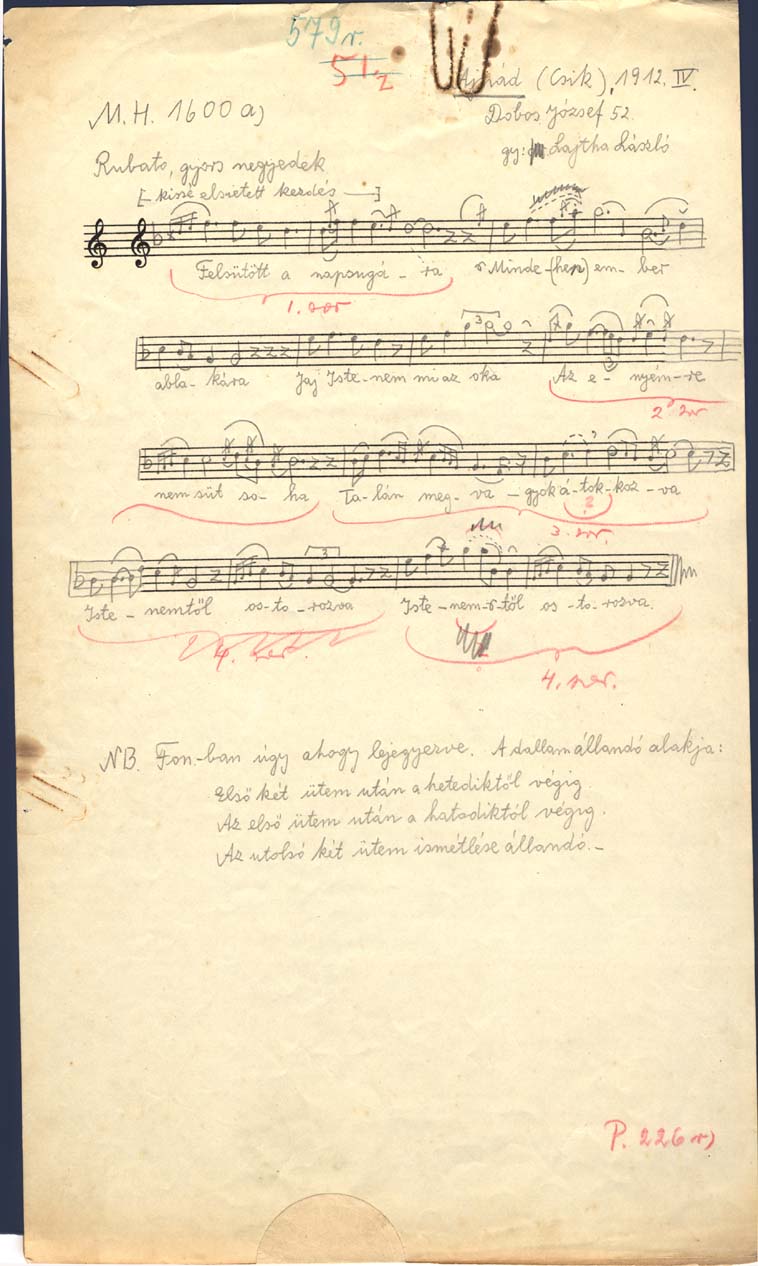 579r.
51z
Ajnád (Csik), 1912. IV.
M.H. 1600 a)
Dobos József 52.
gy: Lajtha László
Rubato, gyors negyedek
[- kissé elsietett kezdés -]
Felsütött a napsugá - ra Minde-(hen) em- ber
1. sor
abla- kára Jaj Iste-nem mi az oka Az e- nyém-re
2 sor
nem süt so- ha Ta-lán meg-va-gyok á-tok-koz-va
2
3. sor.
Iste - nemtől os-to-rozva Iste-nem-től os-to-rozva.
4. sor.
4. sor.
NB. Fon.-ban úgy ahogy lejegyezve. A dallam állandó alakja:
Első két ütem után a hetediktől végig.
Az első ütem után a hatodiktól végig.
Az utolsó két ütem ismétlése állandó.-
P. 226 r)